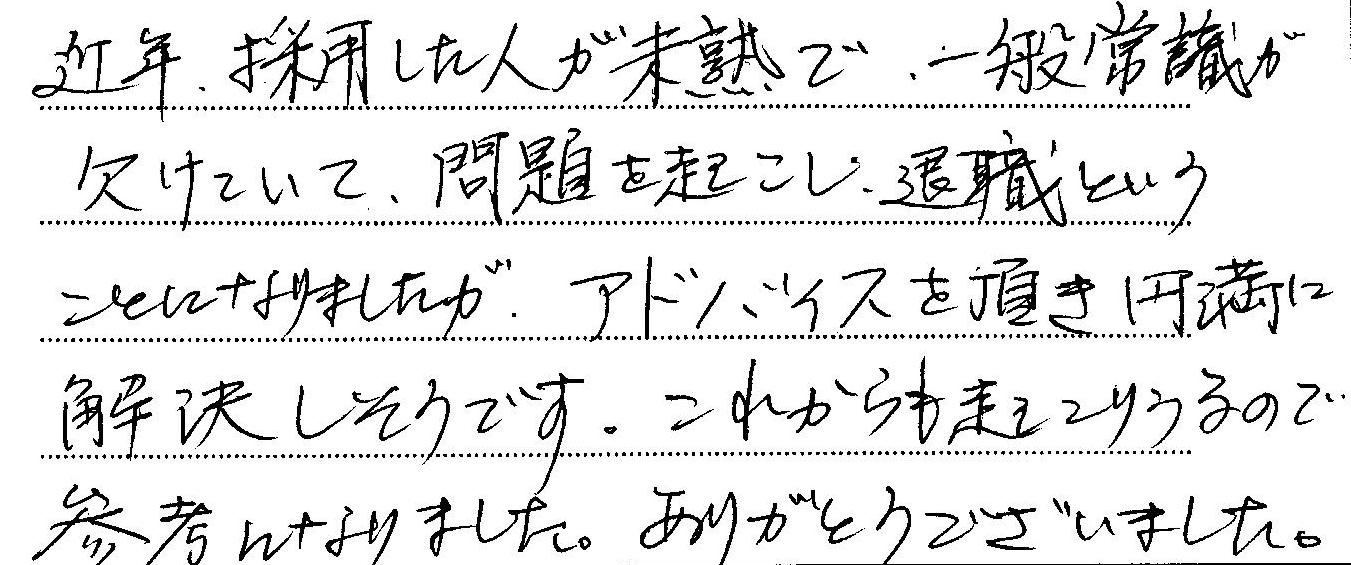 近年、採用した人が未熟で、一般常識が
欠けていて、問題を起こし、退職という
ことになりましたが、アドバイスを頂き円満に
解決しそうです。これからも起こりうるので
参考になりました。ありがとうございました。